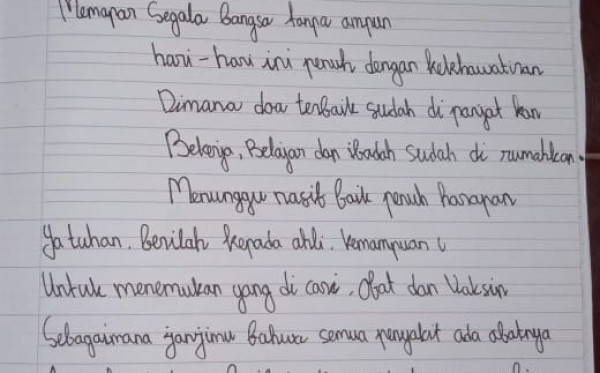 Memapar Segala bangsa tanpa ampun
hari-hari ini penuh dengan kekhawatiran
Dimana doa terbaik sudah di panjat kan
Bekerja, Belajar dan ibadah sudah di rumahkan.
Menunggu nasib baik penuh harapan
Ya tuhan. Berilah kepada ahli. kemampuan
Untuk menemukan yang di cari. Obat dan Vaksin
Sebagaimana janjimu bahwa semua penyakit ada obatnya